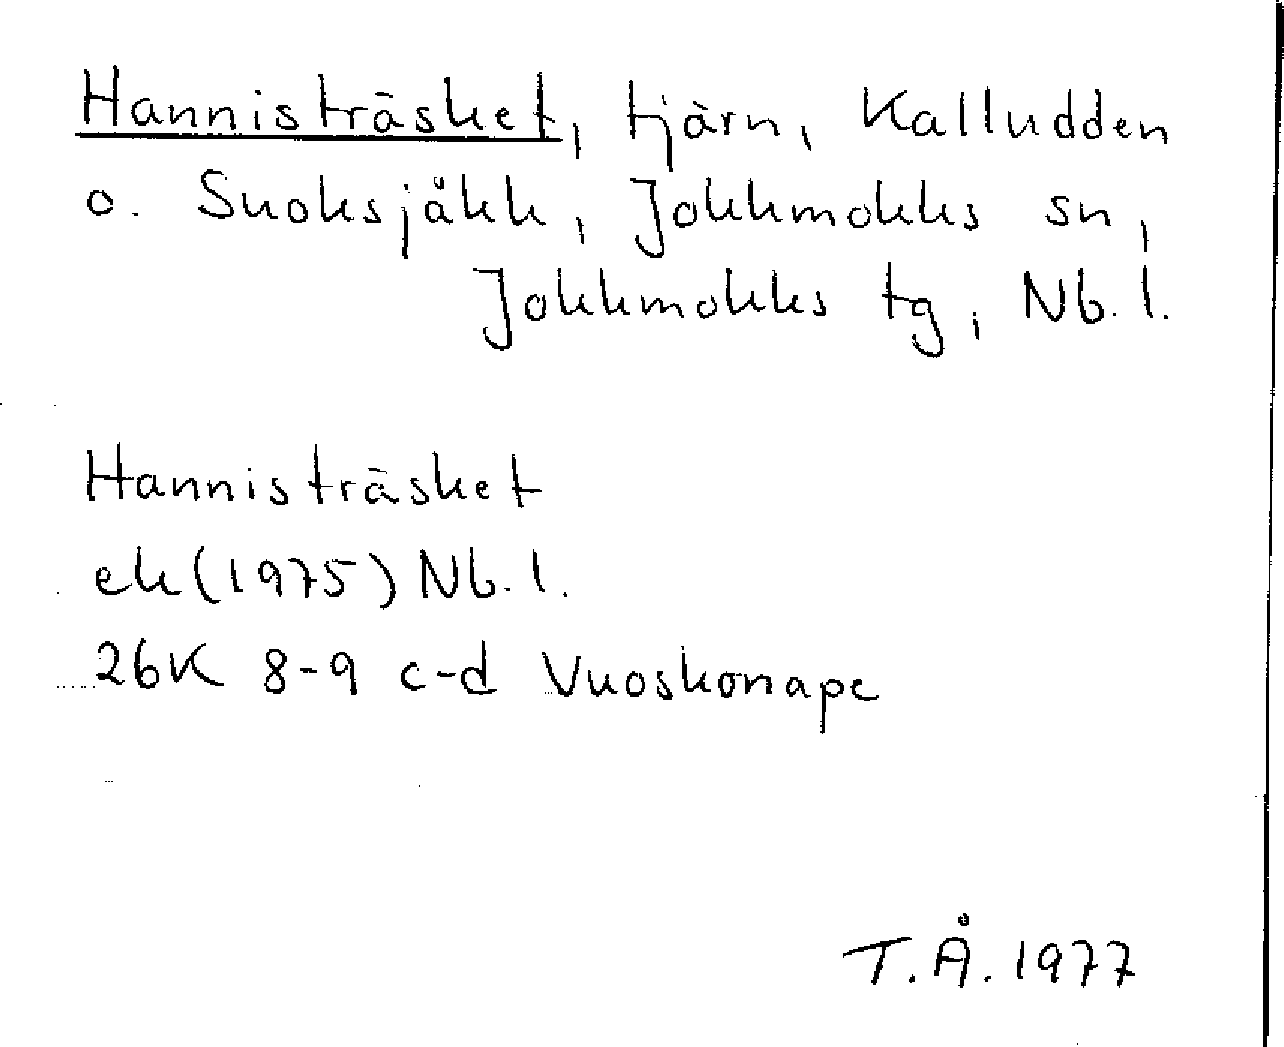 Hannisträsket, tjärn, Kalludden
o. Suoksjåkk, Jokkmokks sn,
Jokkmokks tg, Nb. l.
Hannisträsket
ek (1975) Nb. l.
26K 8-9 c-d Vuoskonape
T.Å. 1977